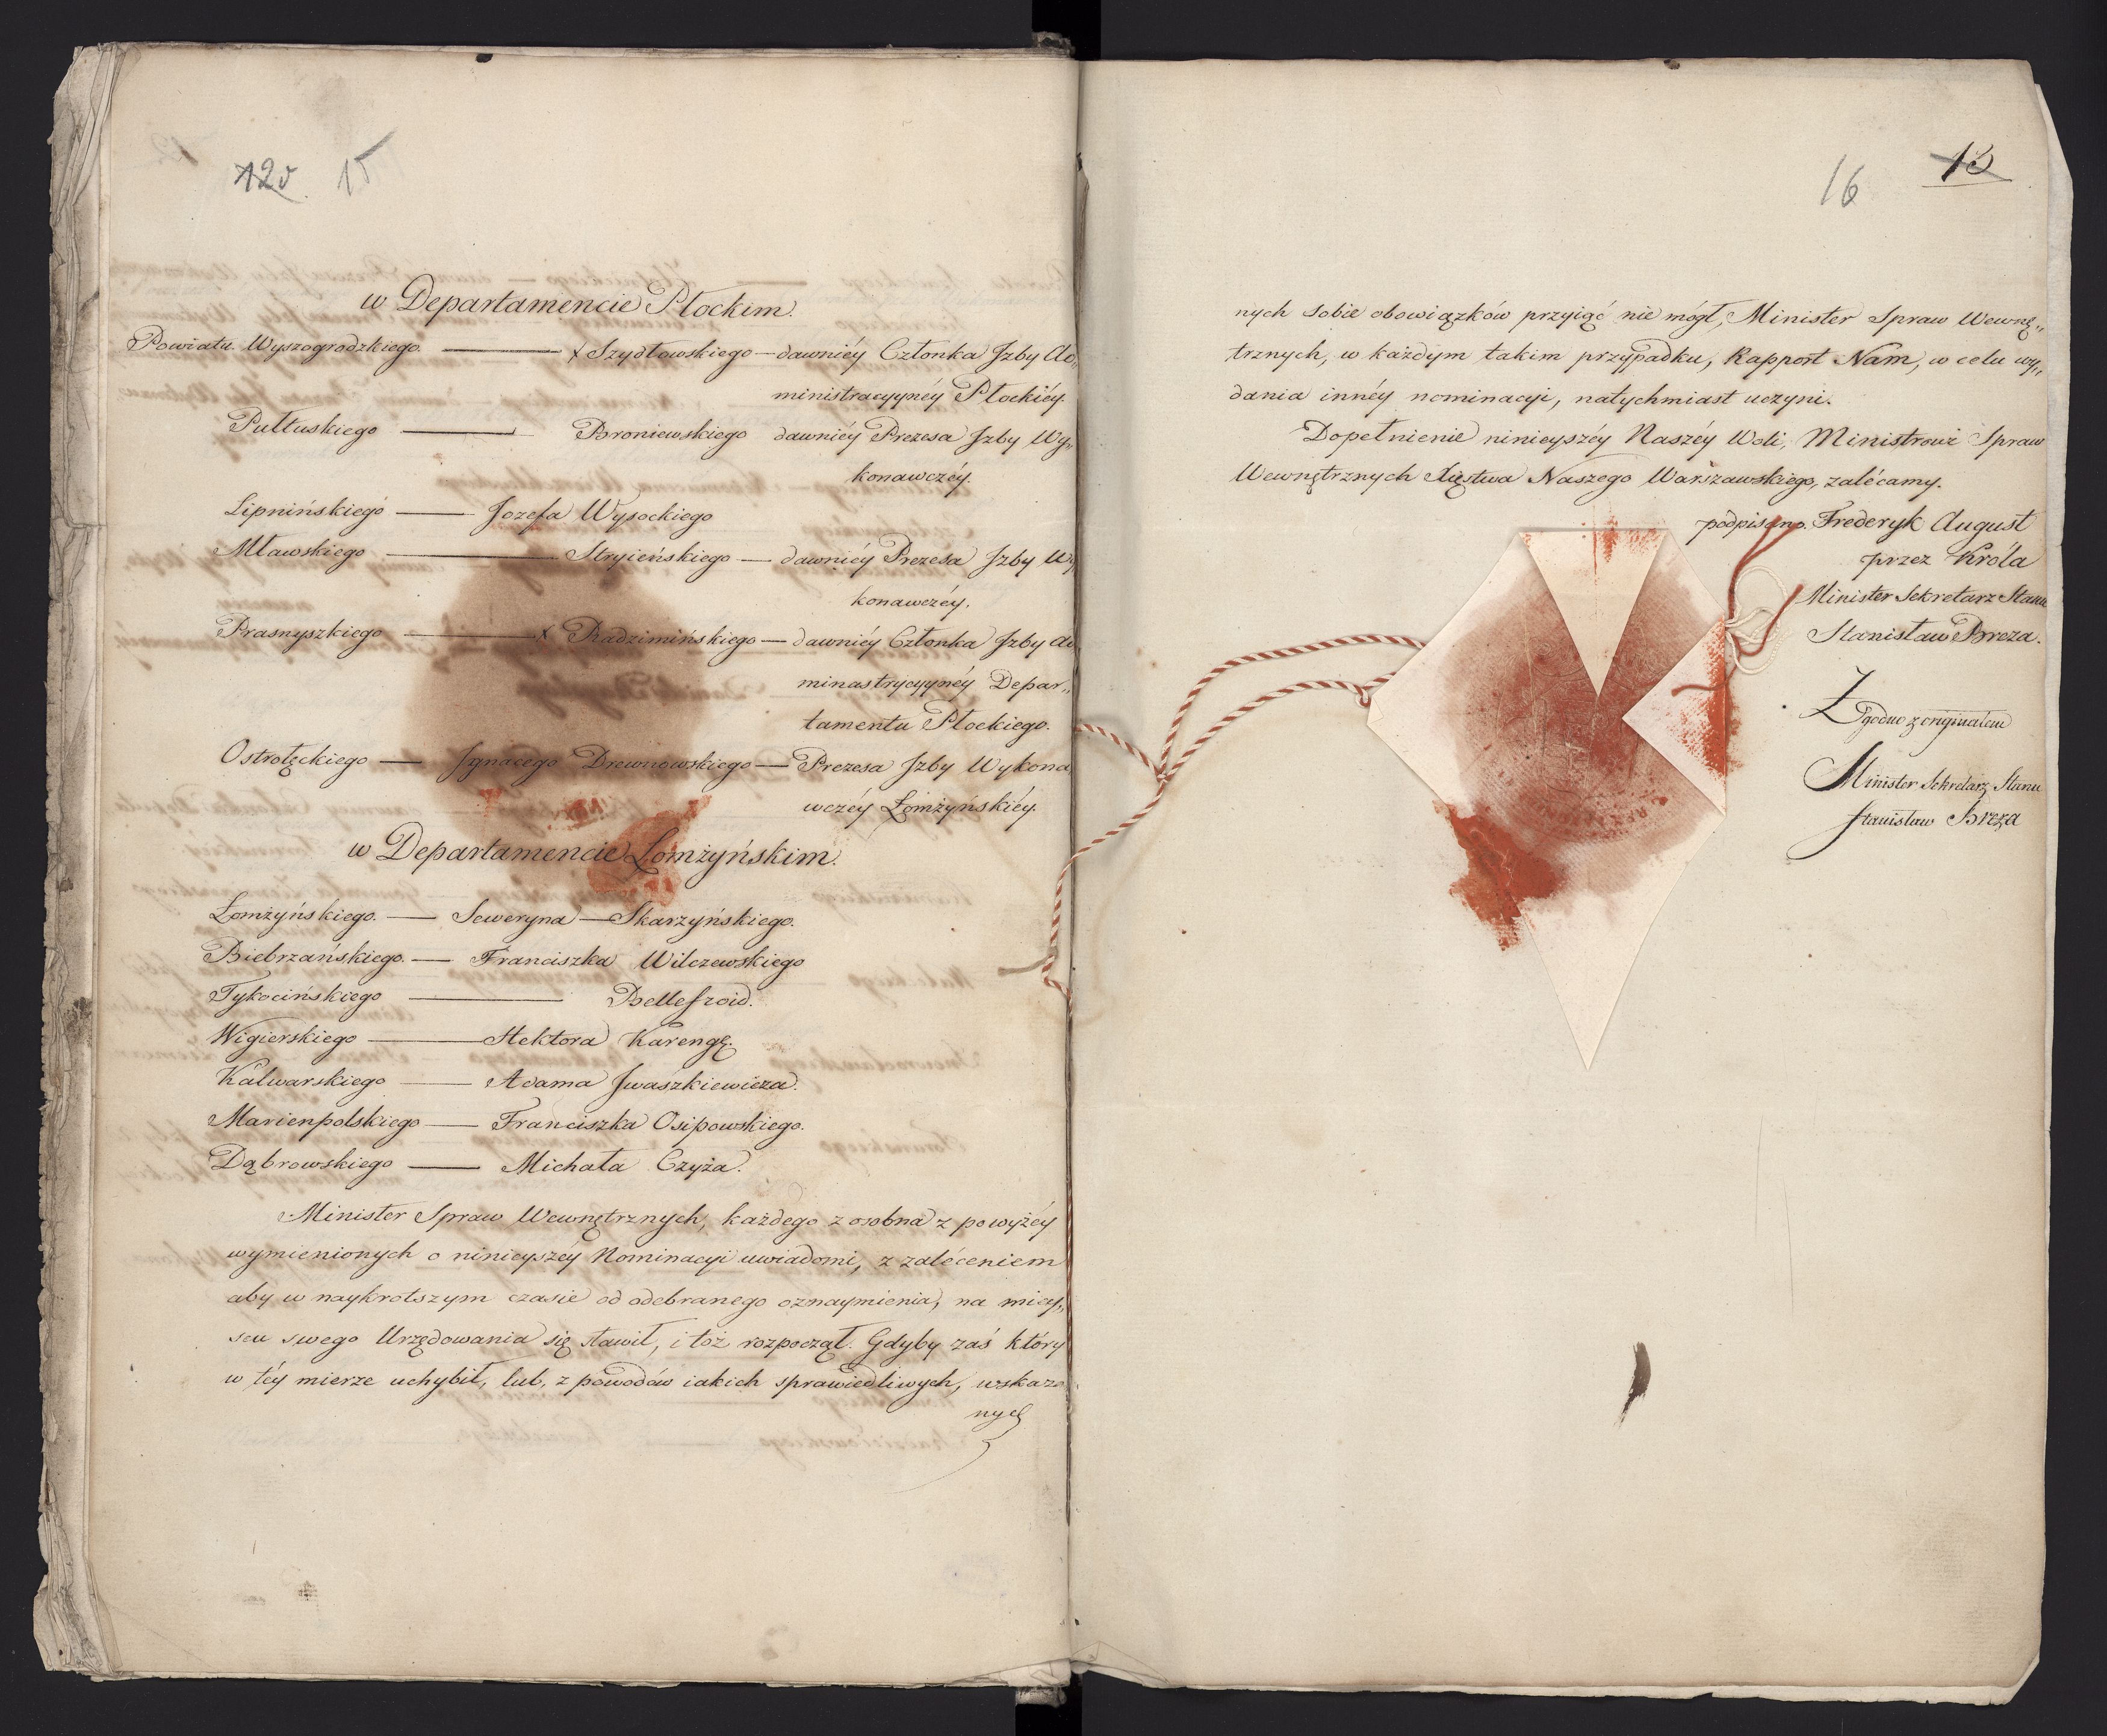 12v. 15
w Departamencie Płockim.
Powiatu Wyszogrodzkiego. — x Szydłowskiego — dawniéy Członka Jzby Ad„
ministracyynéy Płockiéy.
Pułtuskiego — Broniewskiego dawniéy Prezesa Jzby Wy„
konawczéy.
Lipnińskiego — Jozefa Wysockiego
Mławskiego — Stryieńskiego — dawniéy Prezesa Jzby Wy
konawczéy.
Prasnyszkiego — x Radzimińskiego — dawniéy Członka Jzby Ad
minastrycyynéy Depar„
tamentu Płockiego.
Ostrołęckiego — Jgnacego Drewnowskiego — Prezesa Jzby Wykona
wczéy Łomżyńskiéy.
w Departamencie Łomżyńskim.
Łomżyńskiego. — Seweryna — Skarzyńskiego.
Biebrzańskiego. — Franciszka Wilczewskiego
Tykocińskiego — Bellefroid.
Wigierskiego — Hektora Karengę.
Kalwarskiego — Adama Jwaszkiewicza.
Marienpolskiego — Franciszka Osipowskiego.
Dąbrowskiego — Michała Czyża.
Minister Spraw Wewnętrznych, każdego z osobna z powyżéy
wymienionych o ninieyszéy Nominacyi uwiadomi, z zaléceniem
aby w naykrotszym czasie od odebranego oznaymienia, na miey„
scu swego Urzędowania się stawił, i toż rozpoczął. Gdyby zaś który
w téy mierze uchybił, lub, z powodów iakich sprawiedliwych, wskaza
nych
16 13
nych sobie obowiązków przyiąć nie mógł, Minister Spraw Wewnę„
trznych, w każdym takim przypadku, Rapport Nam, w celu wy„
dania innéy nominacyi, natychmiast uczyni.
Dopełnienie ninieyszéy Naszéy Woli, Ministrowi Spraw
Wewnętrznych Xięstwa Naszego Warszawskiego, zalécamy.
podpisano. Frederyk August
przez Króla
Minister Sekretarz Stanu
Stanisław Breza.
Zgodno z originałem
Minister Sekretarz Stanu
Stanisław Breza